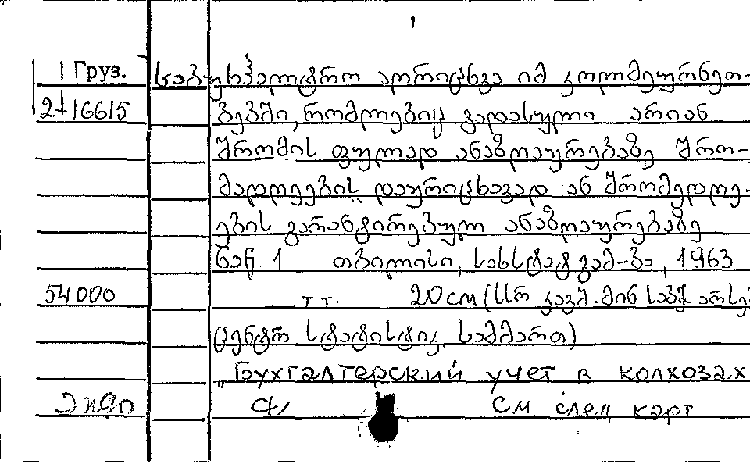 Груз. საბუხჰალტრო აღრიცხვა იმ კოლმეურნეო-
2-16615 ბებში, რომლებიც გადასული არიან
შრომის ფულად ანაზღაურებაზე შრო-
მადღეების დაურიცხავად ან შრომედღე-
ების გარანტირებულ ანაზღაურებაზე
ნაწ. 1 თბილისი, სახსტატგამ-ბა, 1963
54000 თ. 20 см (სსრ კავშ. მინ საბჭ არსებ
ცენტრ სტატისტიკ სამმართ)
„Бухгалтерский учет в колхозах
См след карт